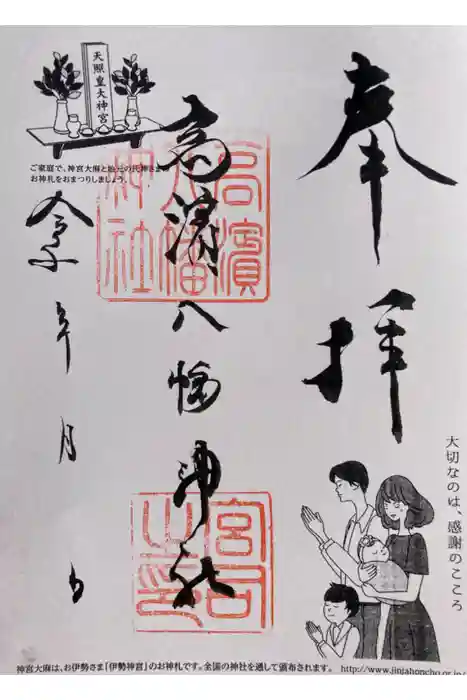 奉拝
高濱八幡神社
令和 年 月 日
高濱八幡神社
宮司之印
天照皇大神宮
ご家庭で、神宮大麻と地元の氏神さまの
お神札をおまつりしましょう。
大切なのは、感謝のこころ
神宮大麻は、お伊勢さま「伊勢神宮」のお神札です。全国の神社を通して頒布されます。 http://www.jinjahoncho.or.jp/